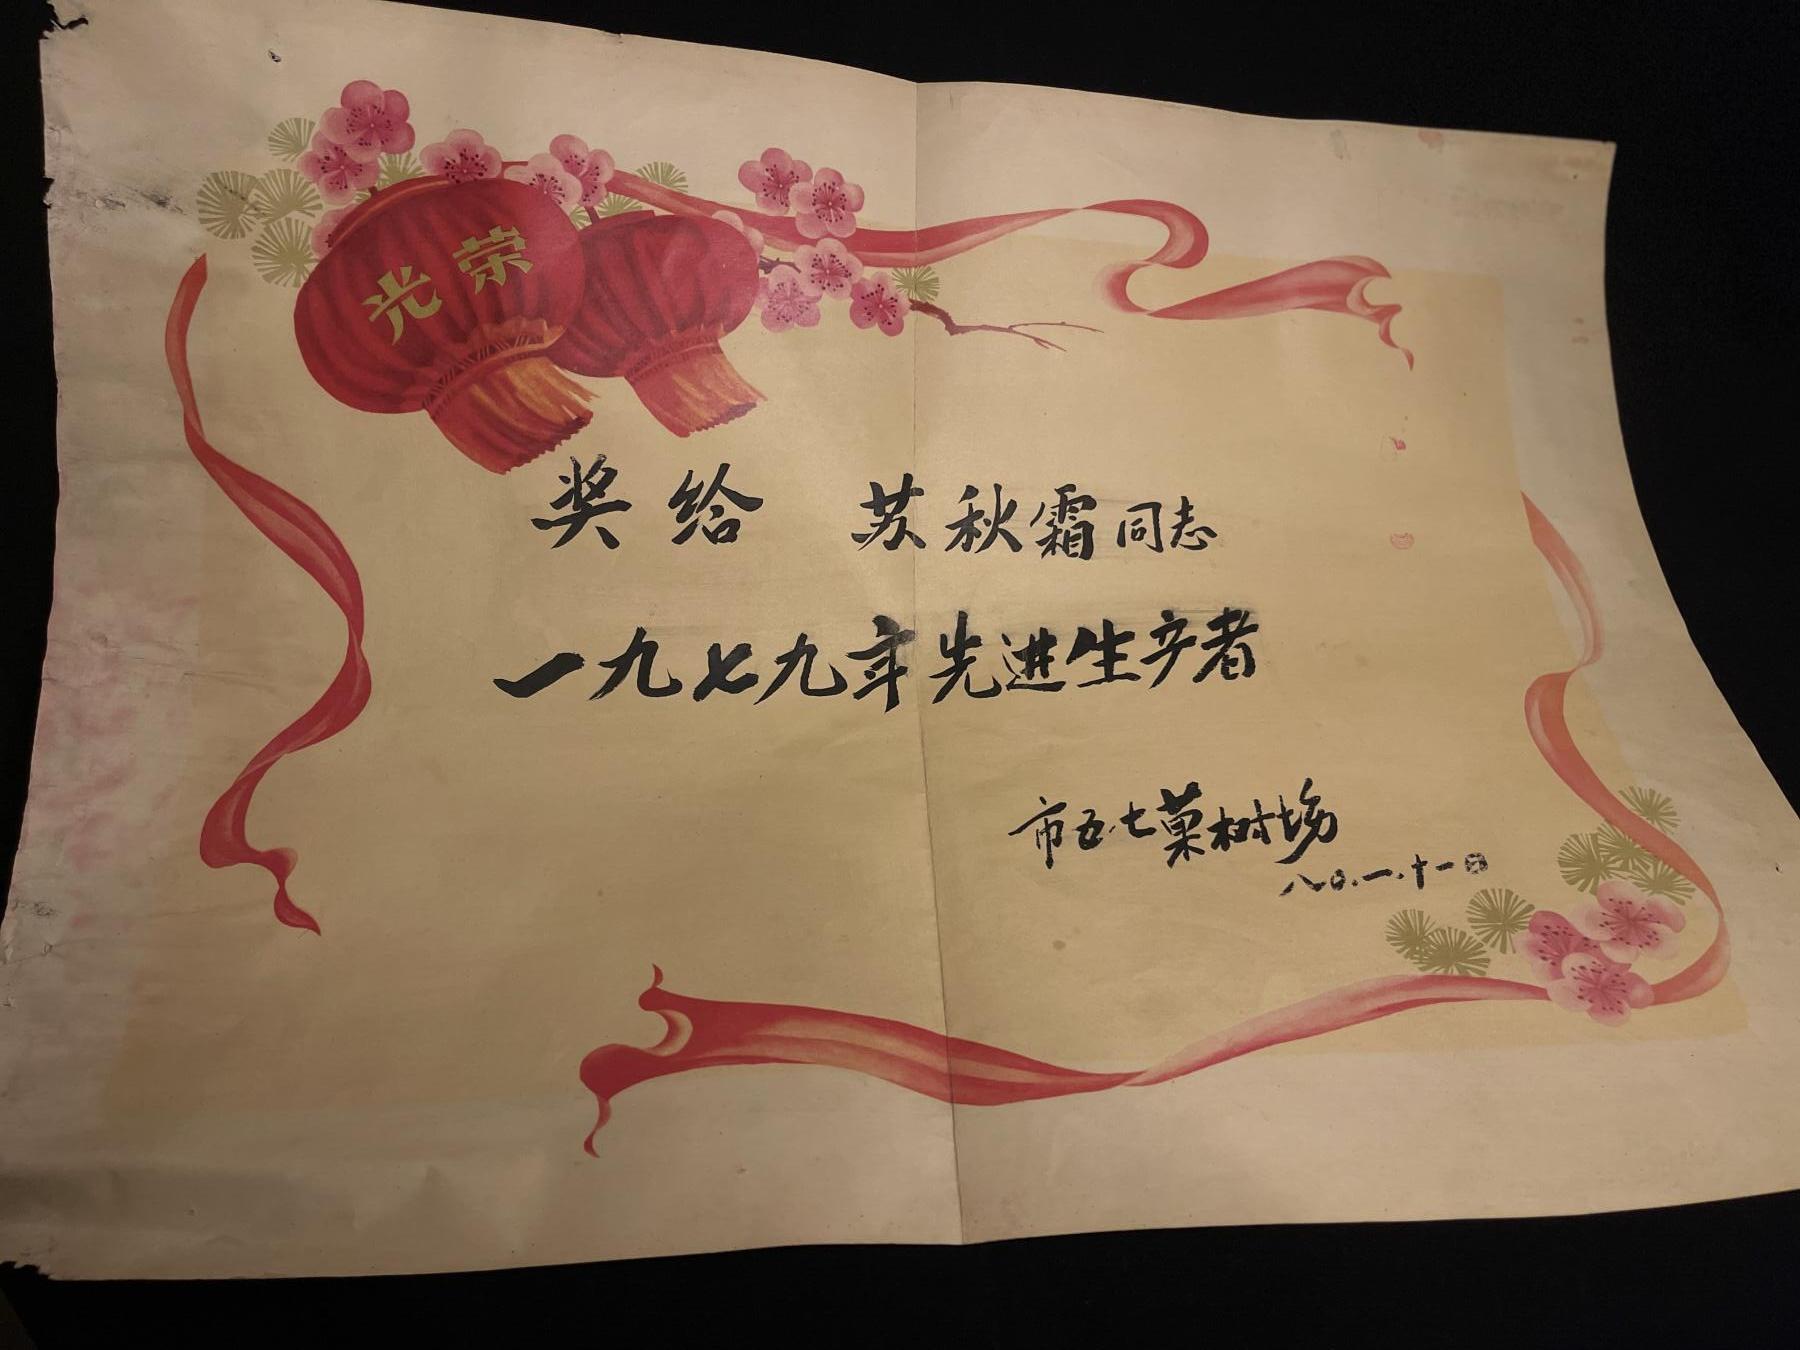 光荣
奖给 苏秋霜同志
一九七九年先进生产者
市五·七菓树场
八〇.一.十一日